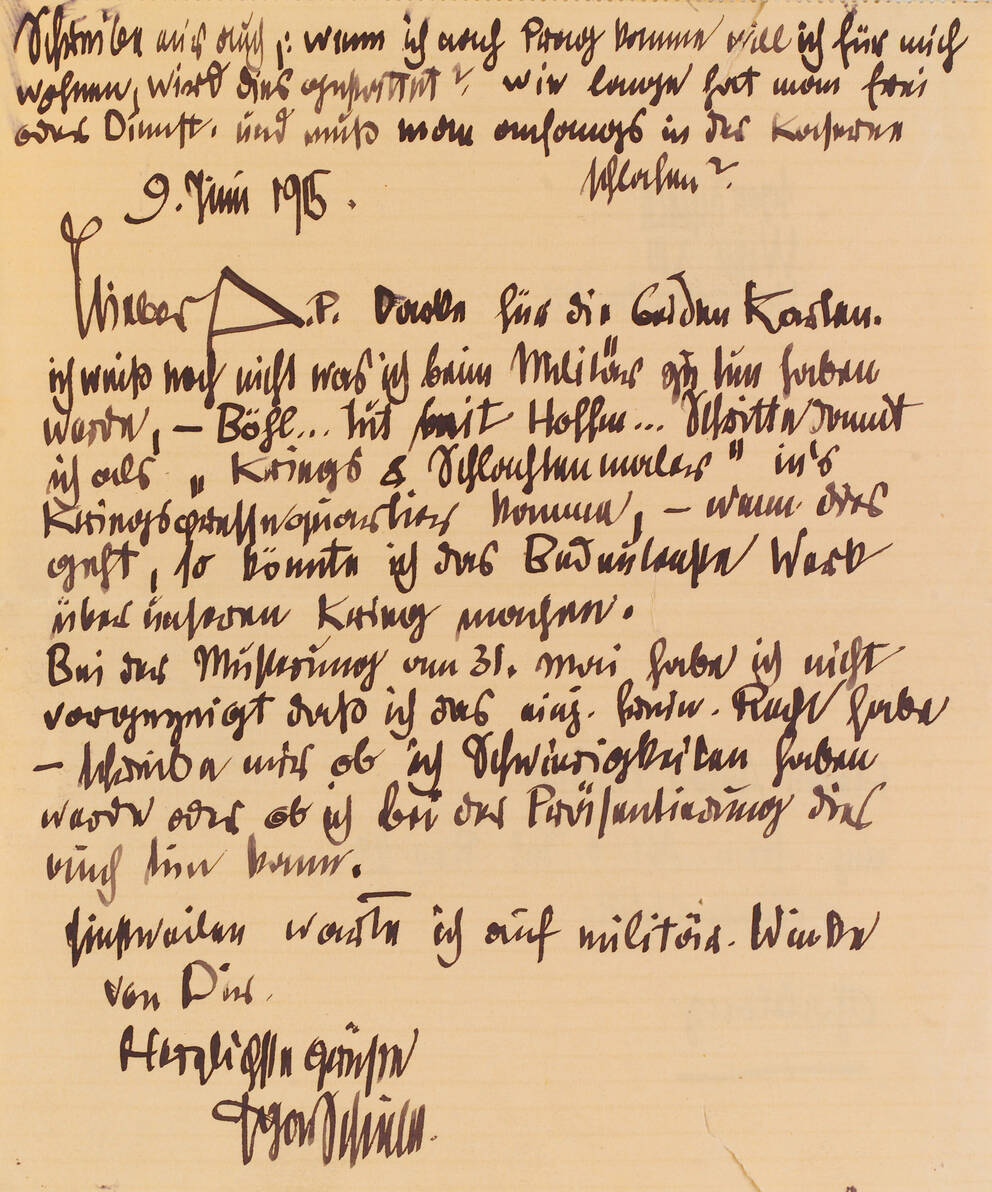 Schreibe mir auch,: wenn ich nach Prag komme will ich für mich
wohnen, wird dies gestattet? wie lange hat man frei
oder Dienst. und muß man anfangs in der Kaserne
schlafen?
9. Juni 1915.
Lieber A.P. Danke für die beiden Karten.
ich weiß noch nicht was ich beim Militär zu tun haben
werde, – Böhl... tut mit Hoffm... Schritte damit
ich als „Kriegs & Schlachtenmaler" in's
Kriegspressequartier komme, – wenn dies
geht, so könnte ich das Bedeutenste Werk
über unseren Krieg machen.
Bei der Musterung am 31. Mai habe ich nicht
vorgezeigt daß ich das einj. freiw. Recht habe
– schreibe mir ob ich Schwierigkeiten haben
werde oder ob ich bei der Präsentierung dies
auch tun kann.
Einstweilen warte ich auf militär. Winke
von Dir.
Herzlichste Grüße
Egon Schiele.